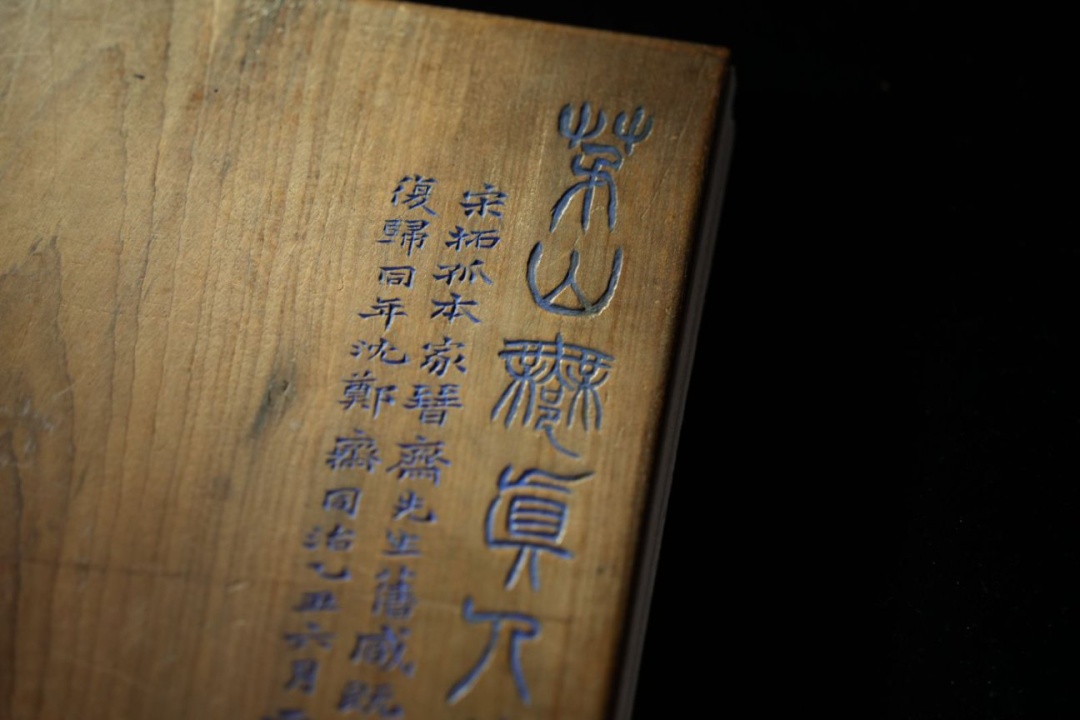 茅山鄦真人
宋拓孤本家晉齋先生舊臧既
復歸同年沈鄭齋同治乙丑六月